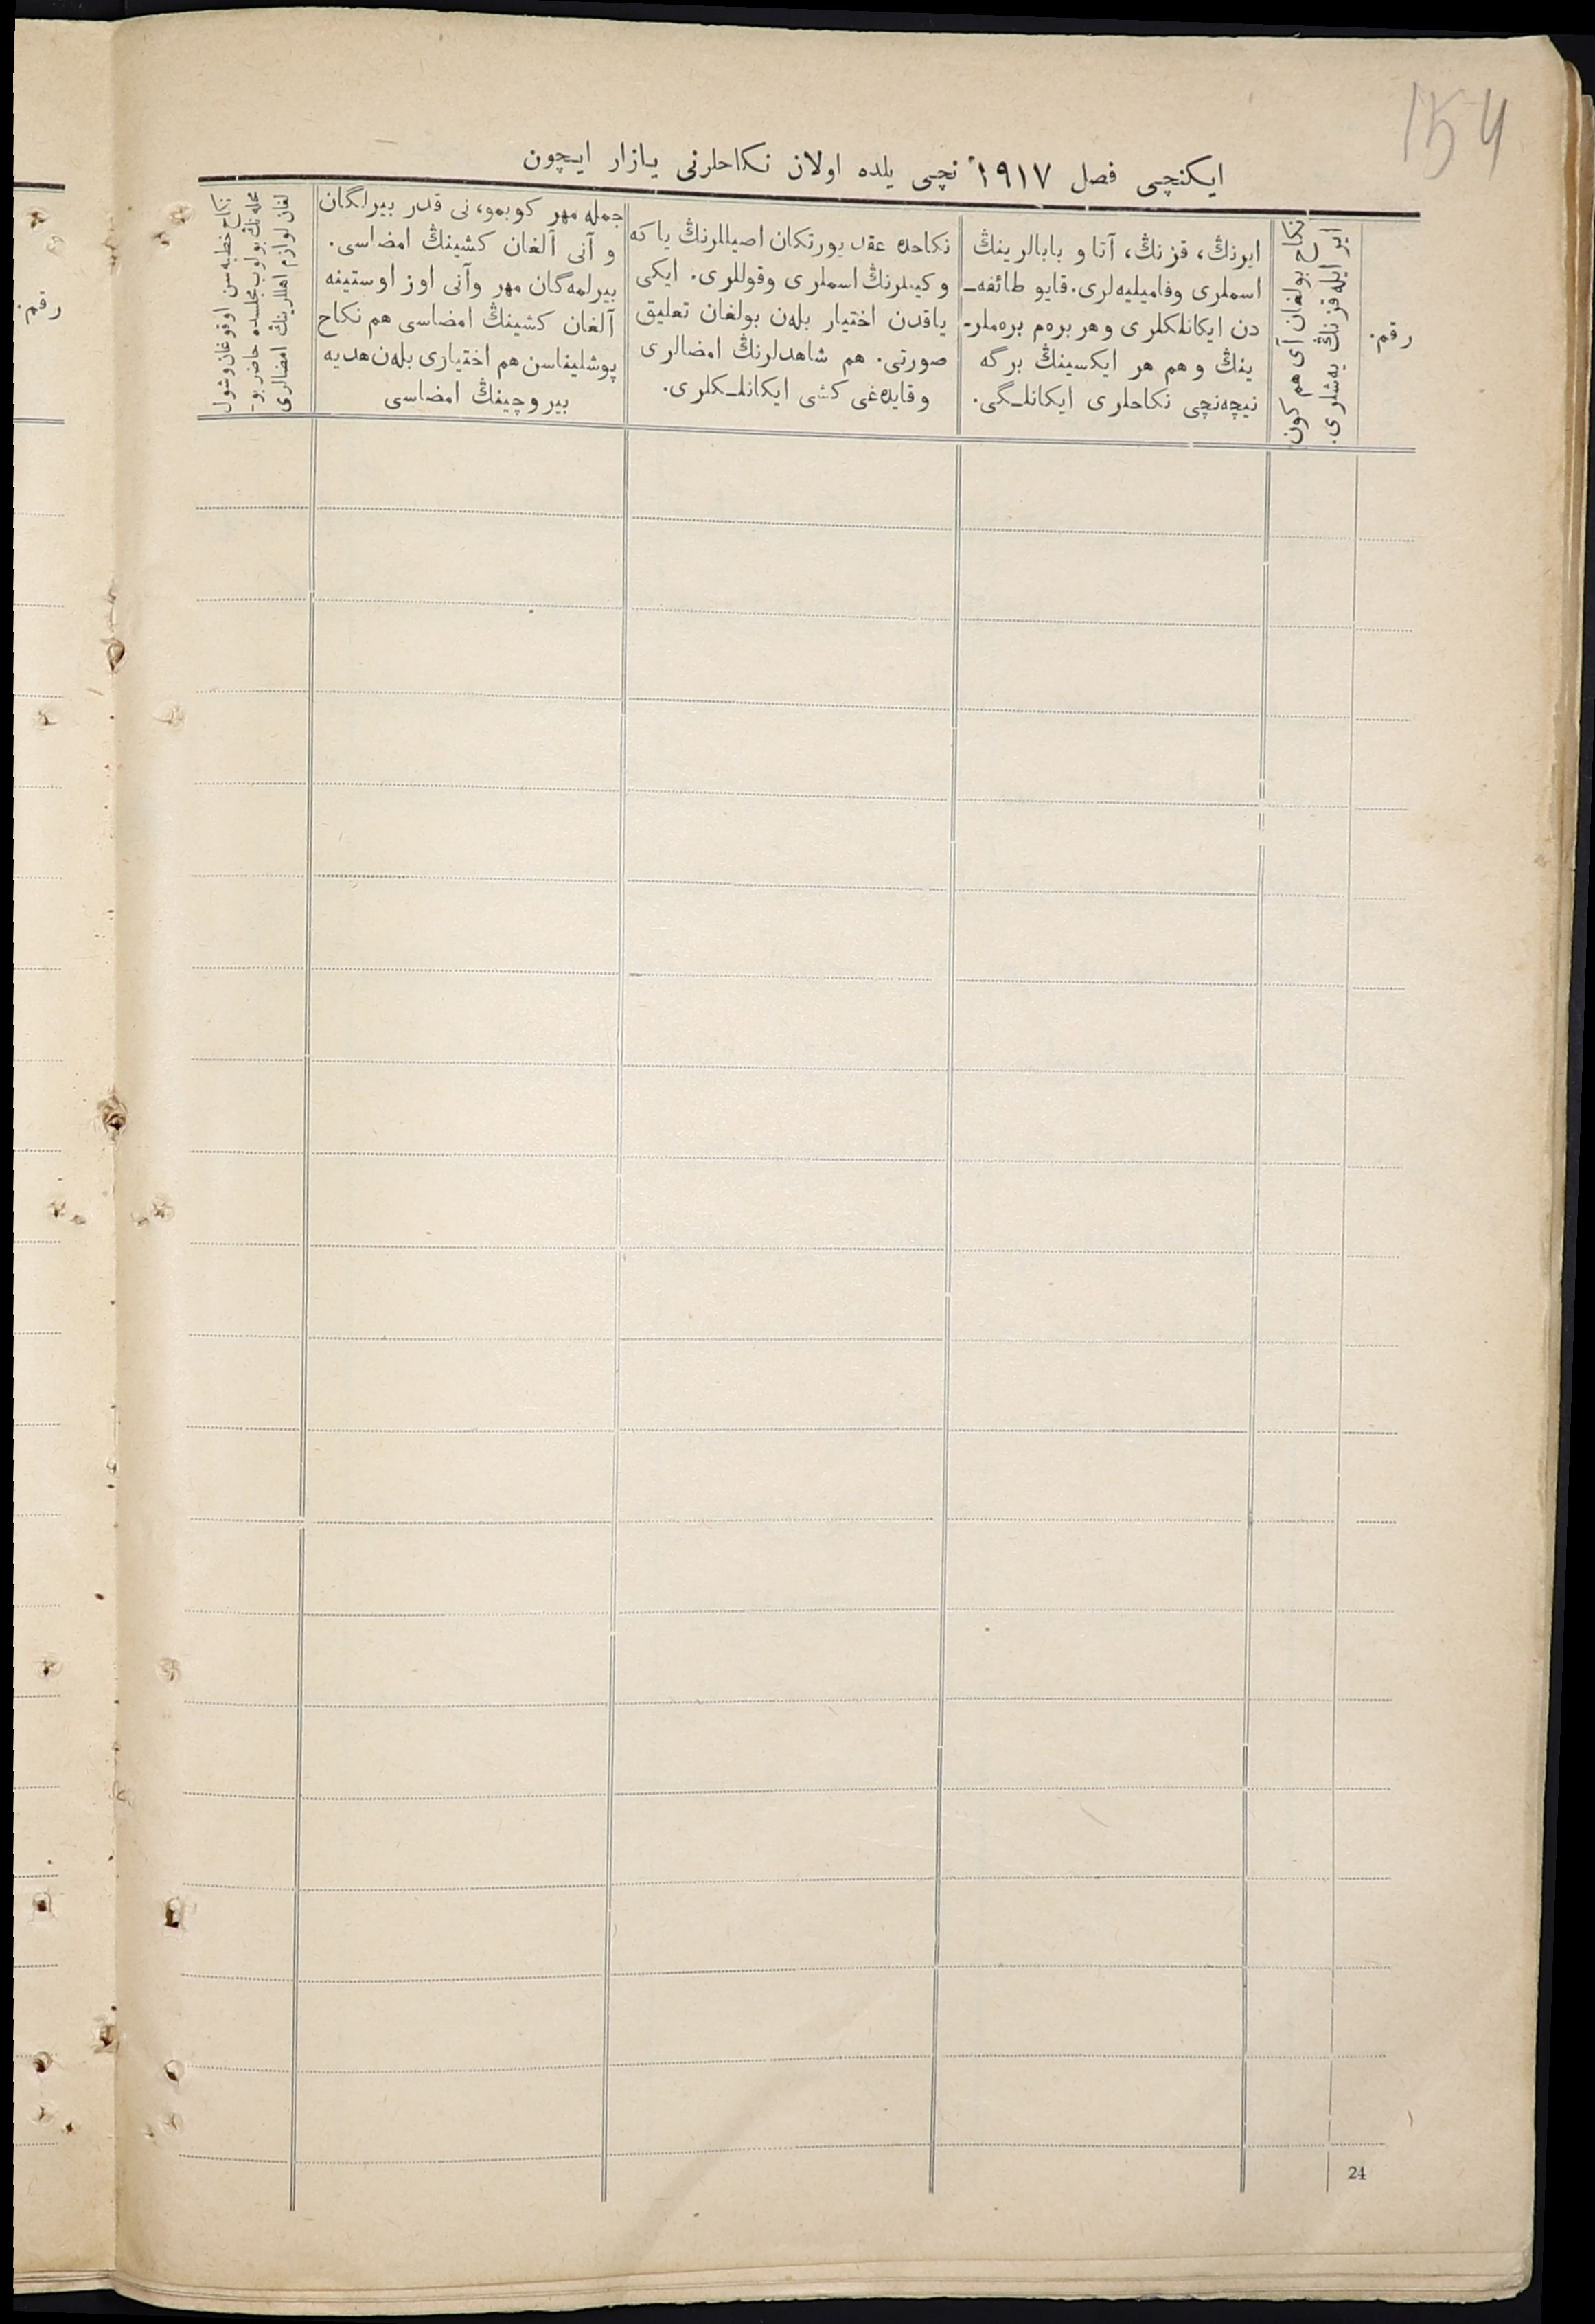 154
ایکنچی فصل ۱۹۱۷ نچی یلده اولان نکاحلرنی یازار ایچون
رقم.
نکاح بولغان آی هم کون
ایر ایله قزنڭ یەشلری.
ایرنڭ، قزنڭ، آتا و بابالرینڭ
اسملری وفامیلیەلری. قایو طائفه‌ـ
دن ایکانلکلری وهر برەم برەملر-
ینڭ و هم هر ایکسینڭ برگه
نیچەنچی نکاحلری ایکانلـگی.
نکاحده عقد یورتکان اصیللرنڭ یا که
وکیلرنڭ اسملری وقوللری. ایکی
یاقدن اختیار بلەن بولغان تعلیق
صورتی. هم شاهدلرنڭ امضالری
وقایدەغی کشی ایکانلـکلری.
جمله مهر کوبمو، نی قدر بیرلگان
و آنی آلغان کشینڭ امضاسی.
بیرلمەگان مهر وآنی اوز اوستینه
آلغان کشینڭ امضاسی هم نکاح
پوشلیناسن هم اختیاری بلەن هدیه
بیروچینڭ امضاسی
نکاح خطبەسن اوقوغان وشول
محلەنڭ بولوب مجلسده حاضر بو-
لغان لوازم اهللرینڭ امضالری
رقم.
24